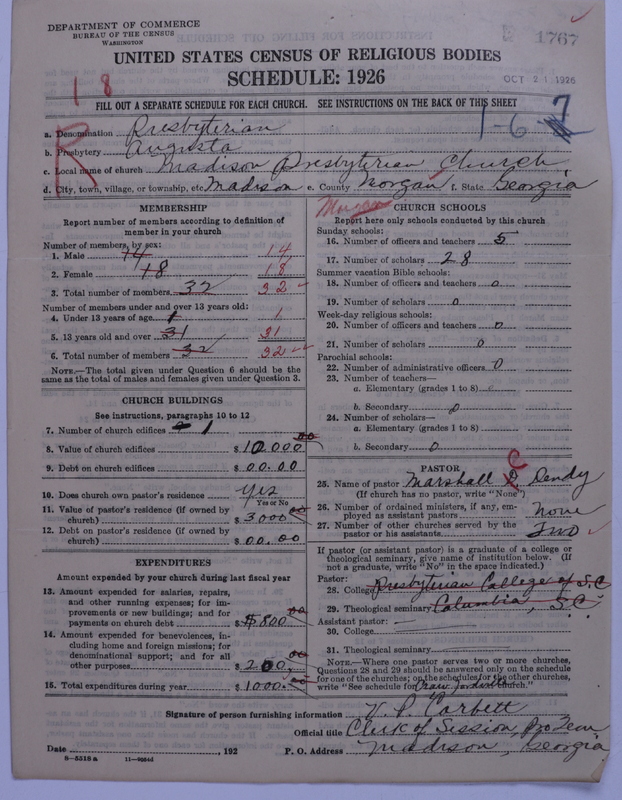 DEPARTMENT OF COMMERCE
BUREAU OF THE CENSUS
WASHINGTON
1767
UNITED STATES CENSUS OF RELIGIOUS BODIES
SCHEDULE: 1926
OCT 21 1926
1 8
FILL OUT A SEPARATE SCHEDULE FOR EACH CHURCH. SEE INSTRUCTIONS ON THE BACK OF THIS SHEET
R
1-6 7
a. Denomination Presbyterian
b. Presbytery Augusta
c. Local name of church Madison Presbyterian Church
d. City, town, village, or township, etc. Madison e. County Morgan f. State Georgia
Morgan
MEMBERSHIP
Report number of members according to definition of
member in your church
Number of members, by sex:
1. Male 14 14
2. Female 18 18
3. Total number of members 32 32
Number of members under and over 13 years old:
4. Under 13 years of age 1 1
5. 13 years old and over 31 31
6. Total number of members 32 32
NOTE.—The total given under Question 6 should be
the same as the total of males and females given under Question 3.
CHURCH BUILDINGS
See instructions, paragraphs 10 to 12
7. Number of church edifices 1
8. Value of church edifices $ 10,000 00
9. Debt on church edifices $ 00.00
10. Does church own pastor's residence yes
Yes or No
11. Value of pastor's residence (if owned by
church) $ 3000 00
12. Debt on pastor's residence (if owned by
church) $ 00.00
EXPENDITURES
Amount expended by your church during last fiscal year
13. Amount expended for salaries, repairs,
and other running expenses; for im-
provements or new buildings; and for
payments on church debt $ 800 00
14. Amount expended for benevolences, in-
cluding home and foreign missions; for
denominational support; and for all
other purposes $ 200 00
15. Total expenditures during year $ 1000. 00
CHURCH SCHOOLS
Report here only schools conducted by this church
Sunday schools:
16. Number of officers and teachers 5
17. Number of scholars 28
Summer vacation Bible schools:
18. Number of officers and teachers 0
19. Number of scholars 0
Week-day religious schools:
20. Number of officers and teachers 0
21. Number of scholars 0
Parochial schools:
22. Number of administrative officers 0
23. Number of teachers—
a. Elementary (grades 1 to 8)
b. Secondary 0
24. Number of scholars—
a. Elementary (grades 1 to 8)
b. Secondary 0
PASTOR
25. Name of pastor Marshall C Dendy
(If church has no pastor, write "None")
26. Number of ordained ministers, if any, em-
ployed as assistant pastors None
27. Number of other churches served by the
pastor or his assistants Two
If pastor (or assistant pastor) is a graduate of a college or
theological seminary, give name of institution below. (If
not a graduate, write "No" in the space indicated.)
Pastor:
28. College Presbyterian College of S.C
29. Theological seminary Columbia, S.C
Assistant pastor:
30. College
31. Theological seminary
NOTE.—Where one pastor serves two or more churches,
Questions 28 and 29 should be answered only on the schedule
for one of the churches; on the schedules for the other churches,
write "See schedule for Crawfordville Church."
Signature of person furnishing information W. P. Corbett
Official title Clerk of Session, Pro Tem
Date , 192 P. O. Address Madison, Georgia
8—5518 a